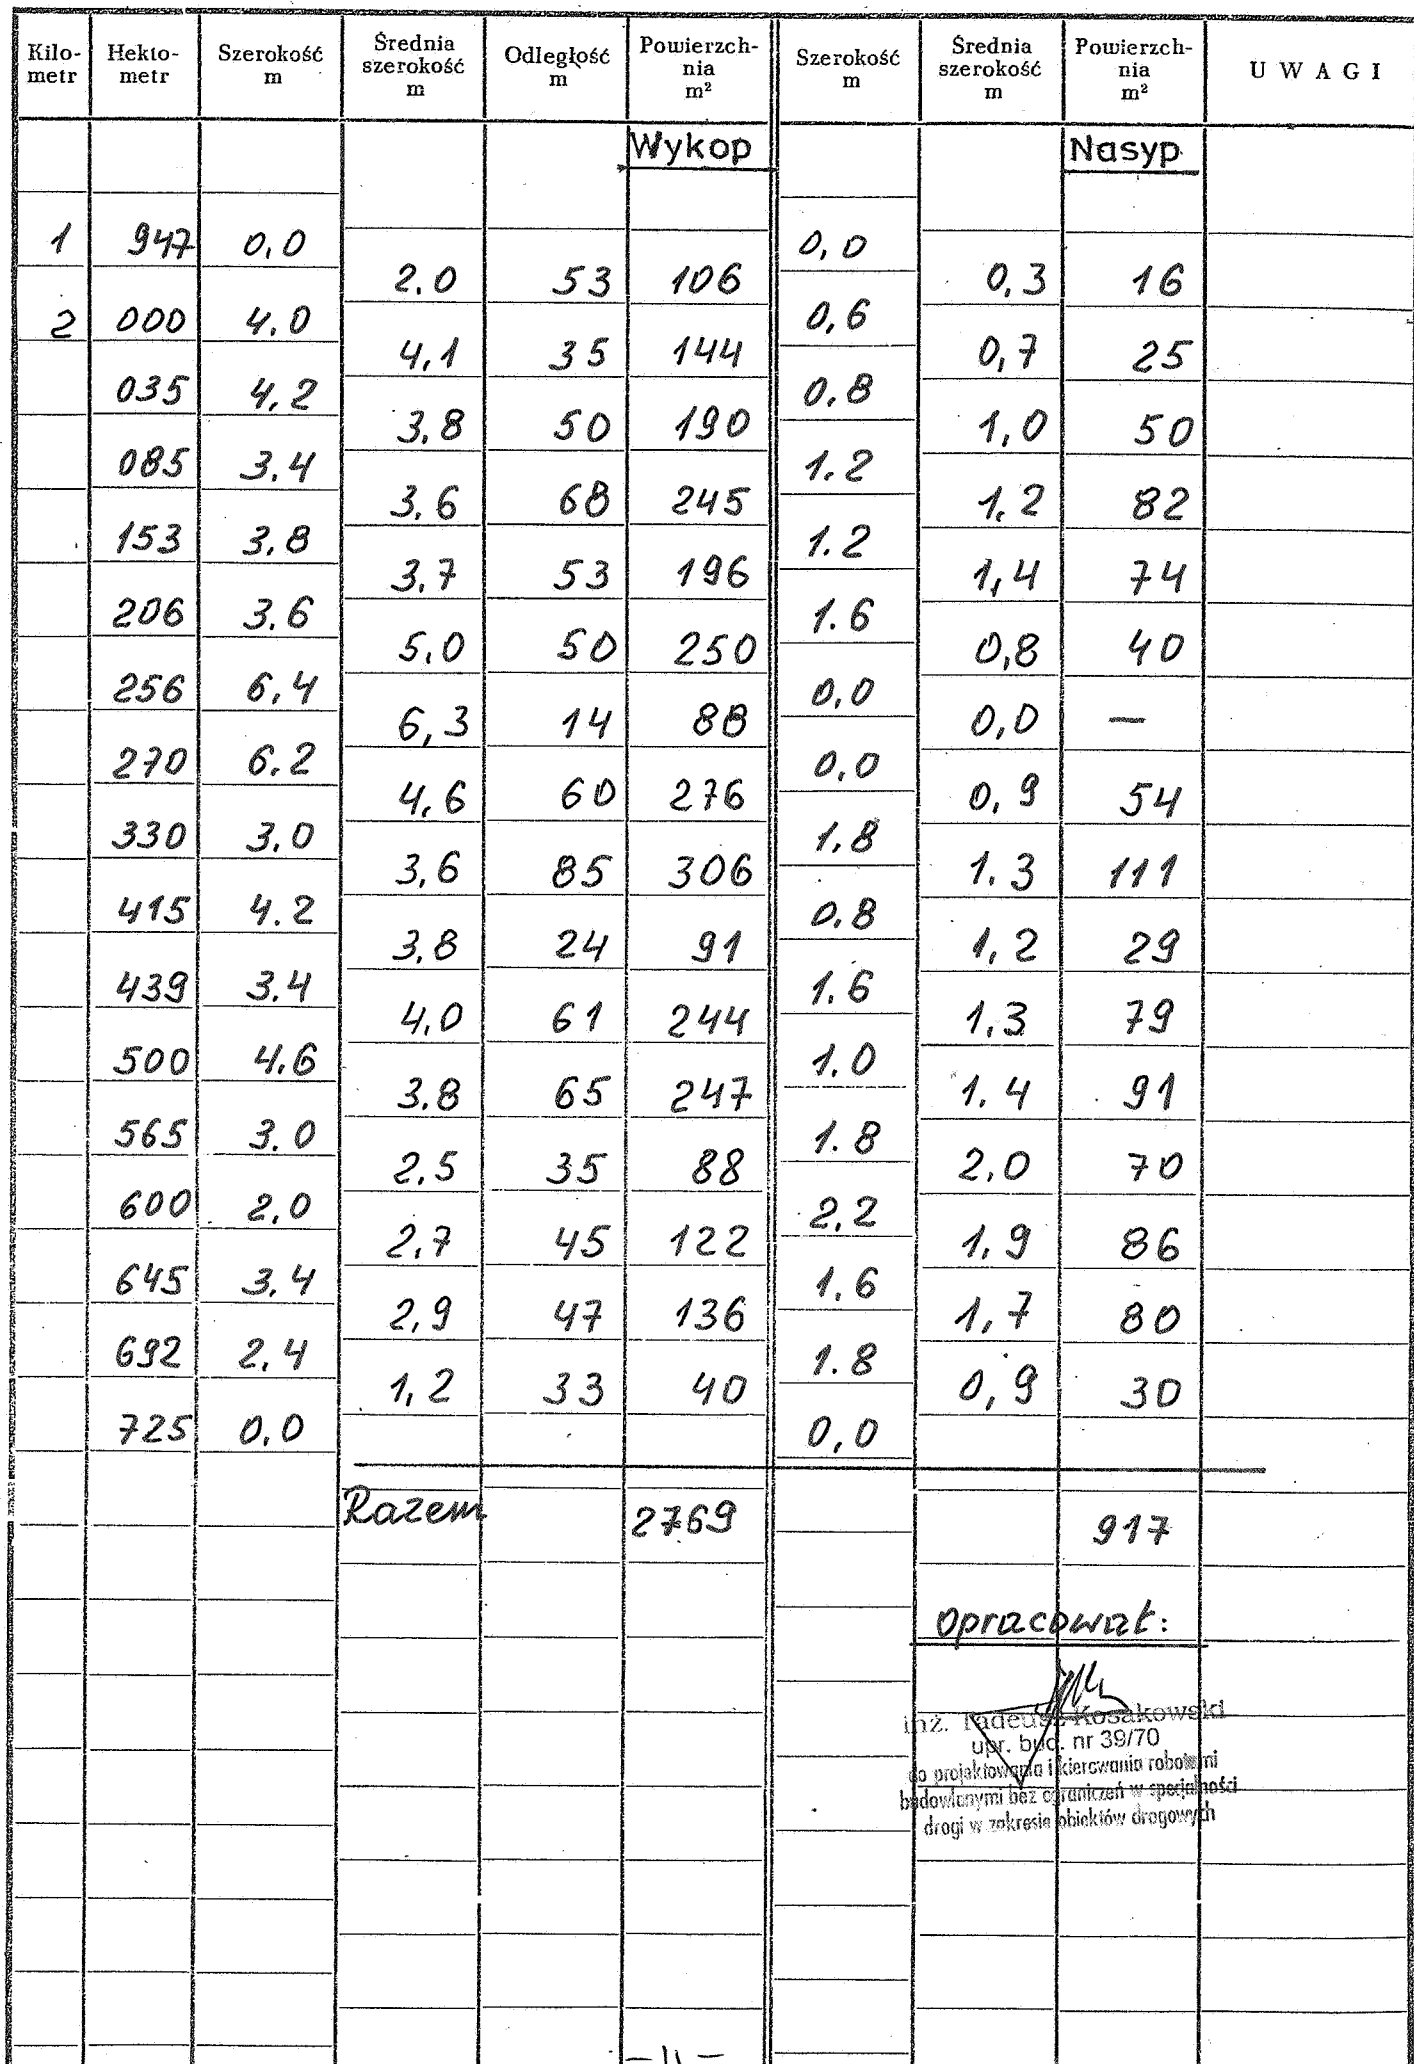 Kilo- metr | Hekto- metr | Szerokość m | Średnia szerokość m | Odległość m | Powierzch- nia m² | Szerokość m | Średnia szerokość m | Powierzch- nia m² | U W A G I
Wykop | Nasyp
1 | 947 | 0,0 | 0,0
2.0 | 53 | 106 | 0,3 | 16
2 | 000 | 4.0 | 0,6
4,1 | 35 | 144 | 0,7 | 25
035 | 4,2 | 0.8
3,8 | 50 | 190 | 1,0 | 50
085 | 3.4 | 1.2
3,6 | 68 | 245 | 1,2 | 82
153 | 3,8 | 1.2
3,7 | 53 | 196 | 1,4 | 74
206 | 3.6 | 1.6
5,0 | 50 | 250 | 0,8 | 40
256 | 6,4 | 0,0
6,3 | 14 | 88 | 0,0 | —
270 | 6.2 | 0,0
4,6 | 60 | 276 | 0,9 | 54
330 | 3,0 | 1,8
3,6 | 85 | 306 | 1.3 | 111
415 | 4.2 | 0.8
3,8 | 24 | 91 | 1,2 | 29
439 | 3.4 | 1.6
4,0 | 61 | 244 | 1,3 | 79
500 | 4,6 | 1.0
3.8 | 65 | 247 | 1.4 | 91
565 | 3.0 | 1.8
2,5 | 35 | 88 | 2,0 | 70
600 | 2,0 | 2,2
2,7 | 45 | 122 | 1,9 | 86
645 | 3,4 | 1,6
2,9 | 47 | 136 | 1,7 | 80
692 | 2,4 | 1.8
1,2 | 33 | 40 | 0,9 | 30
725 | 0,0 | 0,0
Razem | 2769 | 917
Opracował:
inż. Tadeusz Kosakowski
upr. bud. nr 39/70
do projektowania i kierowania robotami
budowlanymi bez ograniczeń w specjalności
drogi w zakresie obiektów drogowych